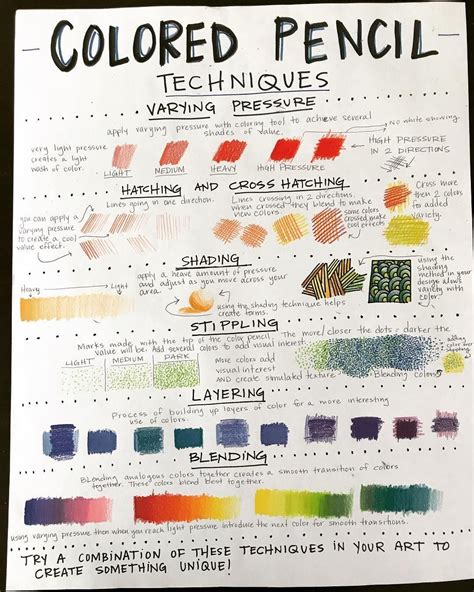 COLORED PENCIL
TECHNIQUES
VARYING PRESSURE
apply varying pressure with coloring tool to achieve several
shades of value.
No white showing.
very light pressure
creates a light
wash of color.
LIGHT
MEDIUM
HEAVY
HIGH PRESSURE
HIGH PRESSURE
IN 2
DIRECTIONS
HATCHING AND CROSS HATCHING
Lines going in one direction.
Lines crossing in 2 directions.
when crossed they blend to make
new colors.
you can apply a
varying pressure
to create a cool
value effect.
some colors
crossed make
cool effects
Cross more
then 2 colors
for added
variety.
SHADING
Heavy
Light
apply a heave amount of pressure
and adjust as you move across your
area.
using the shading technique helps
create forms.
using the
shading
method in your
design allows
variety with
color.
STIPPLING
Marks made with the tip of the color pencil.
Add several colors to add visual interest.
The more/closer the dots = darker the
value will be.
LIGHT
MEDIUM
DARK
More colors add
visual interest
AND create simulated texture
Blending colors
adding
color over
stippling
LAYERING
Process of building up layers of color for a more interesting
use of colors.
BLENDING
Blending analogous colors together creates a smooth transition of colors
together. These colors blend best together.
using varying pressure then when you reach light pressure introduce the next color for smooth transitions.
TRY A COMBINATION OF THESE TECHNIQUES IN YOUR ART TO
CREATE SOMETHING UNIQUE!